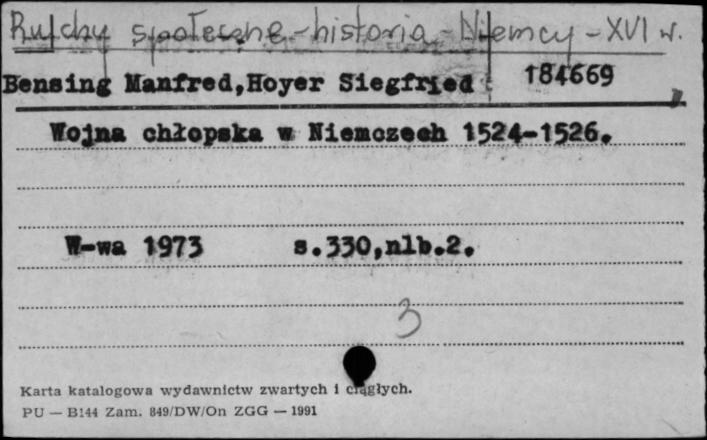 Ruchy społeczne - historia - Niemcy - XVI w.
Bensing Manfred,Hoyer Siegfried : 184669
Wojna chłopska w Niemczech 1524-1526.
W-wa 1973 s.330,nlb.2.
3
Karta katalogowa wydawnictw zwartych i ciągłych.
PU — B144 Zam. 849/DW/On ZGG — 1991